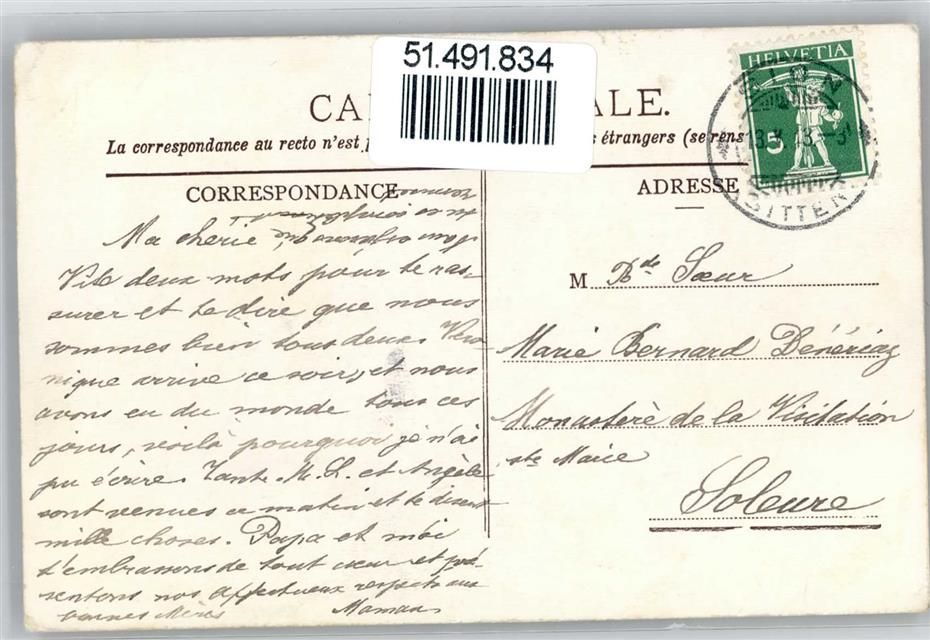 51.491.834
HELVETIA
5
SION
13.X.13.-9
SITTEN
CA ALE.
La correspondance au recto n'est étrangers (se rens
CORRESPONDANCE
ADRESSE
Ma chérie,
Vite deux mots pour te ras-
surer et te dire que nous
sommes bien tous deux. Véro-
nique arrive ce soir, et nous
avons eu du monde tous ces
jours, voilà pourquoi je n'ai
pu écrire. Tante M. L. et Angèle
sont venues ce matin et te disent
mille choses. Papa et moi
t'embrassons de tout cœur et pré-
sentons nos affectueux respects aux
bonnes Mères Maman
M Rde Sœur
Marie Bernard Bénériaz
Monastère de la Visitation
ste Marie
Soleure